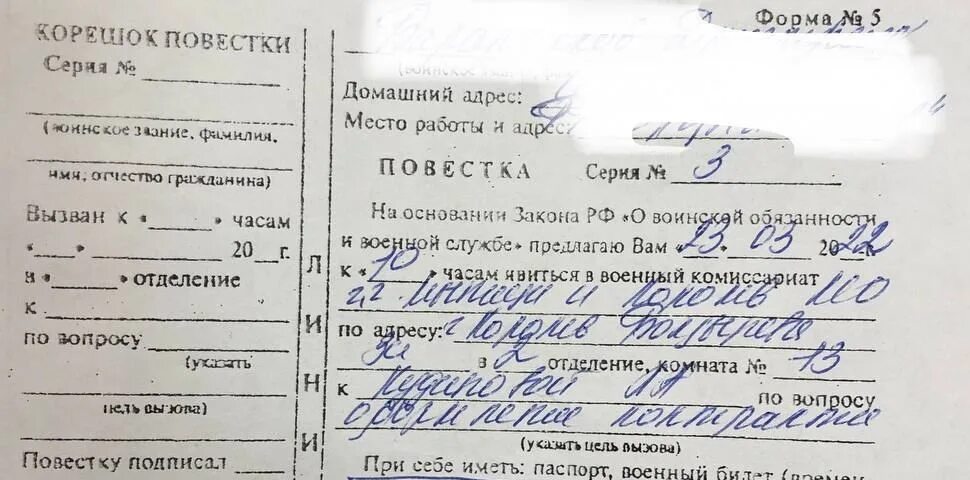 КОРЕШОК ПОВЕСТКИ
Серия №
(воинское звание, фамилия,
имя, отчество гражданина)
Вызван к « » часам
« » 20 г.
в « » отделение
к
по вопросу
(указать
цель вызова)
Повестку подписал
ЛИНИ
Форма № 5
Домашний адрес:
Место работы и адрес:
ПОВЕСТКА Серия № 3
На основании Закона РФ «О воинской обязанности
и военной службе» предлагаю Вам «23» 03 2022 г.
к «10» часам явиться в военный комиссариат
г.г. Мытищи и Королёв МО
по адресу: г. Королёв Болдырева
в 2 отделение, комната № 13
к Кудиновой по вопросу
оформление контракта
(указать цель вызова)
При себе иметь: паспорт, военный билет (времен